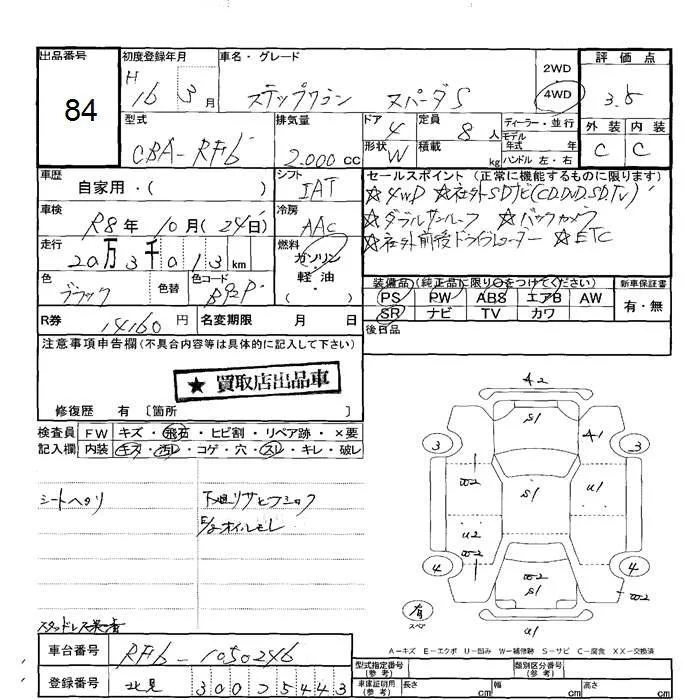 出品番号
84
初度登録年月
H 16 3月
車名・グレード
ステップワゴン スパーダS
2WD
4WD
評価点
3.5
外装 内装
C C
型式
CBA-RF6
排気量
2.000cc
ドア
4
定員
8人
形状
W
積載
kg
ディーラー・並行
モデル年式 年
ハンドル 左・右
車歴
自家用・( )
シフト
IAT
セールスポイント (正常に機能するものに限ります)
☆4WD ☆社外SDナビ(CD.DVD.SD.TV)
☆ダブルサンルーフ ☆バックカメラ
☆社外前後ドライブレコーダー ☆ETC
車検
R8年 10月(24日)
冷房
AAC
走行
20万3千013km
燃料
ガソリン
軽・油
・( )
色
ブラック
色替
色コード
B92P
装備品 (純正品に限り○をつけてください)
PS PW ABS エアB AW
SR ナビ TV カワ
新車保証書
有・無
R券
14160円
名変期限 月 日
後日品
注意事項申告欄(不具合内容等は具体的に記入して下さい)
★買取店出品車
修復歴 有 〔箇所 〕
検査員記入欄
FW キズ・飛石・ヒビ割・リペア跡・×要
内装 キズ・汚レ・コゲ・穴・スレ・キレ・破レ
シートヘタリ
下廻りサビフショク
E/gオイルモレ
A2
S1
A1
3
3
W2
S1
U1
U2
W2
4
4
W2
S1
W2
W2
有
スペア
U1
A-キズ E-エクボ U-凹み W-補修跡 S-サビ C-腐食 XX-交換済
車台番号
RF6-1050246
登録番号
北見 300 2 5443
型式指定番号(参考)
類別区分番号(参考)
車庫証明用(参考)
長さ cm 幅 cm 高さ cm